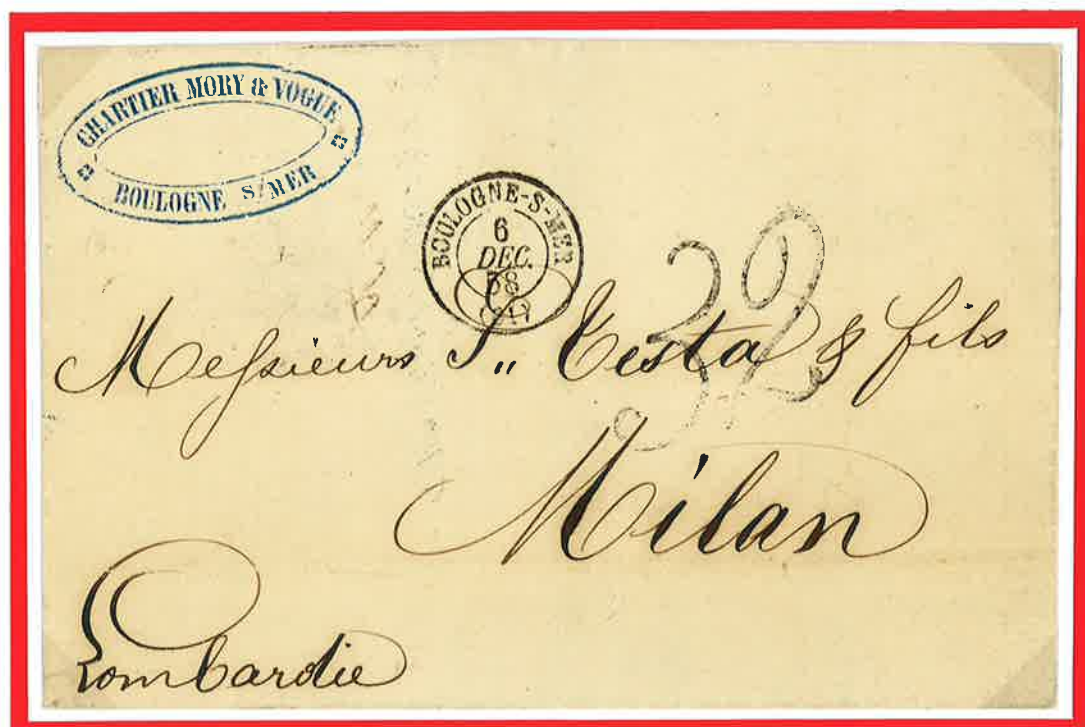 CHARTIER MORY & VOGUE
BOULOGNE S/MER
BOULOGNE-S-MER
6
DEC.
58
(61)
32
Messieurs J„ Testa & fils
Milan
Lombardie